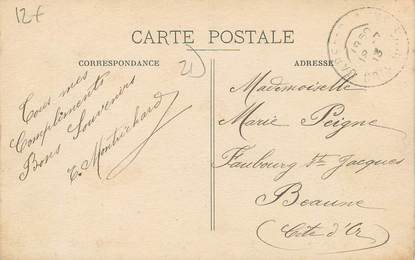 12€
CARTE POSTALE
CORRESPONDANCE
ADRESSE
Tous mes
Compléments
Bons Souvenirs
E. Montrichard
Mademoiselle
Marie Peigne
Faubourg St Jacques
Beaune
(Côte d'Or)